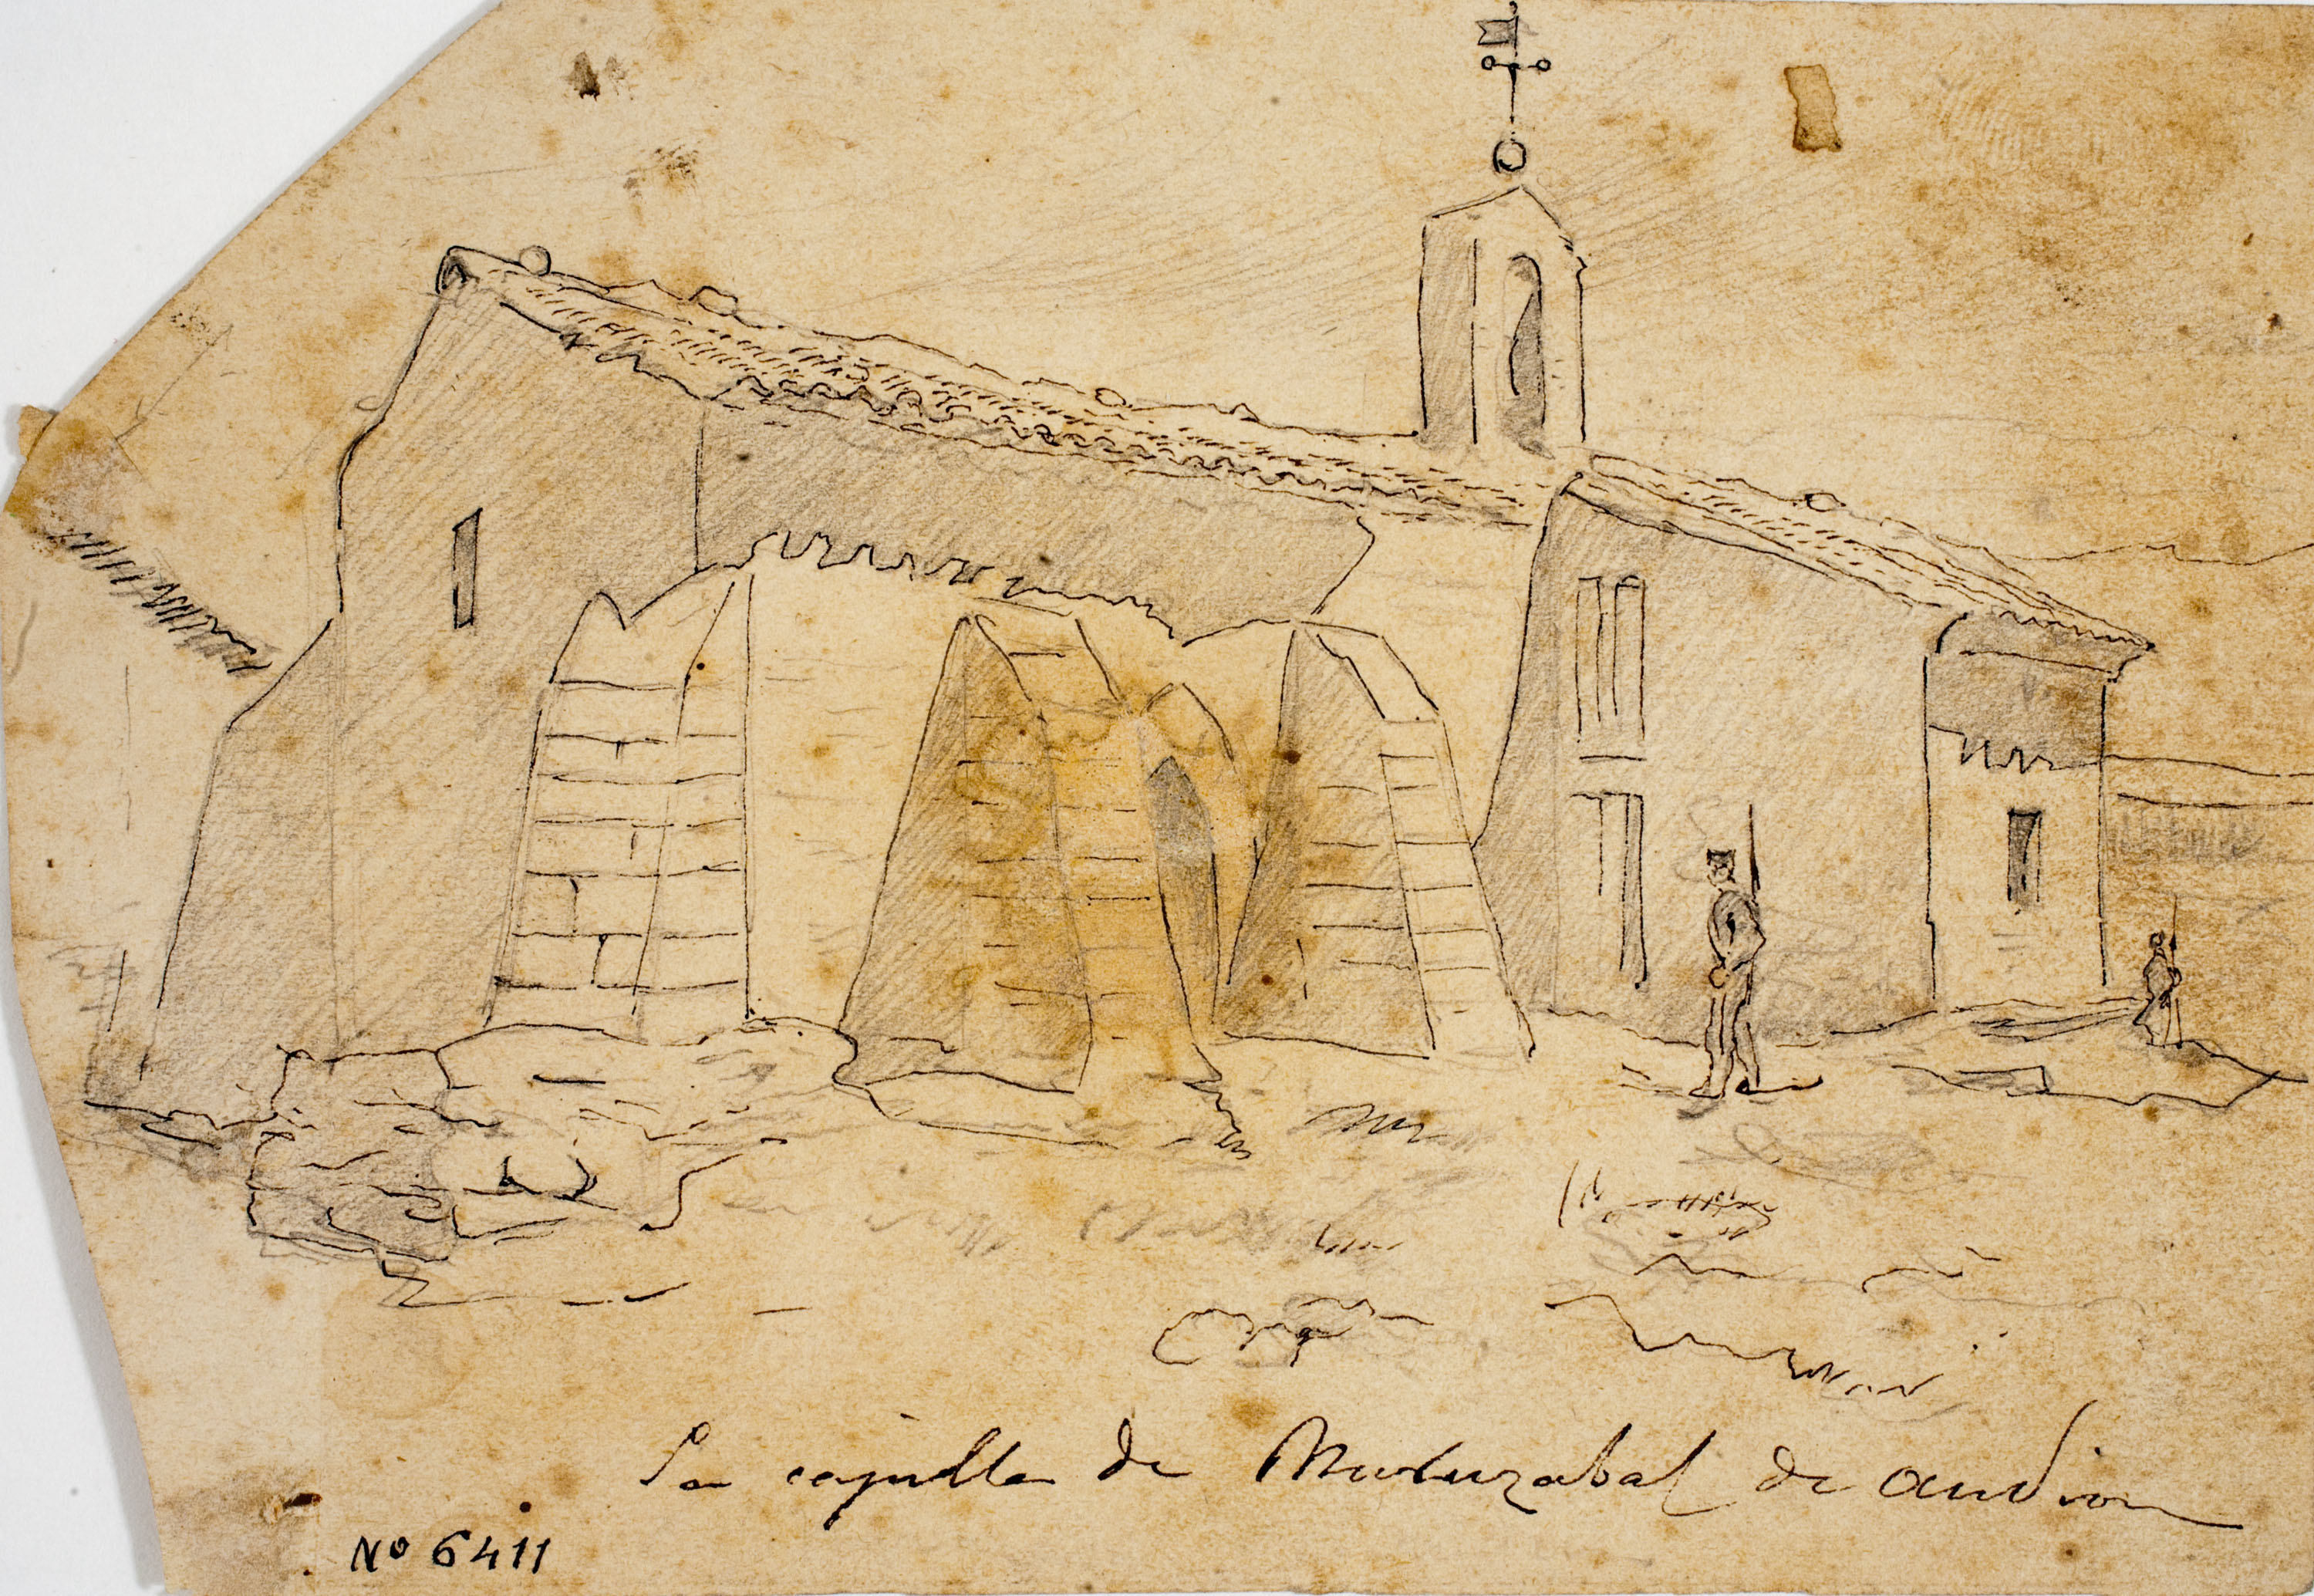 La capilla de Muruzabal de andion
Nº 6411